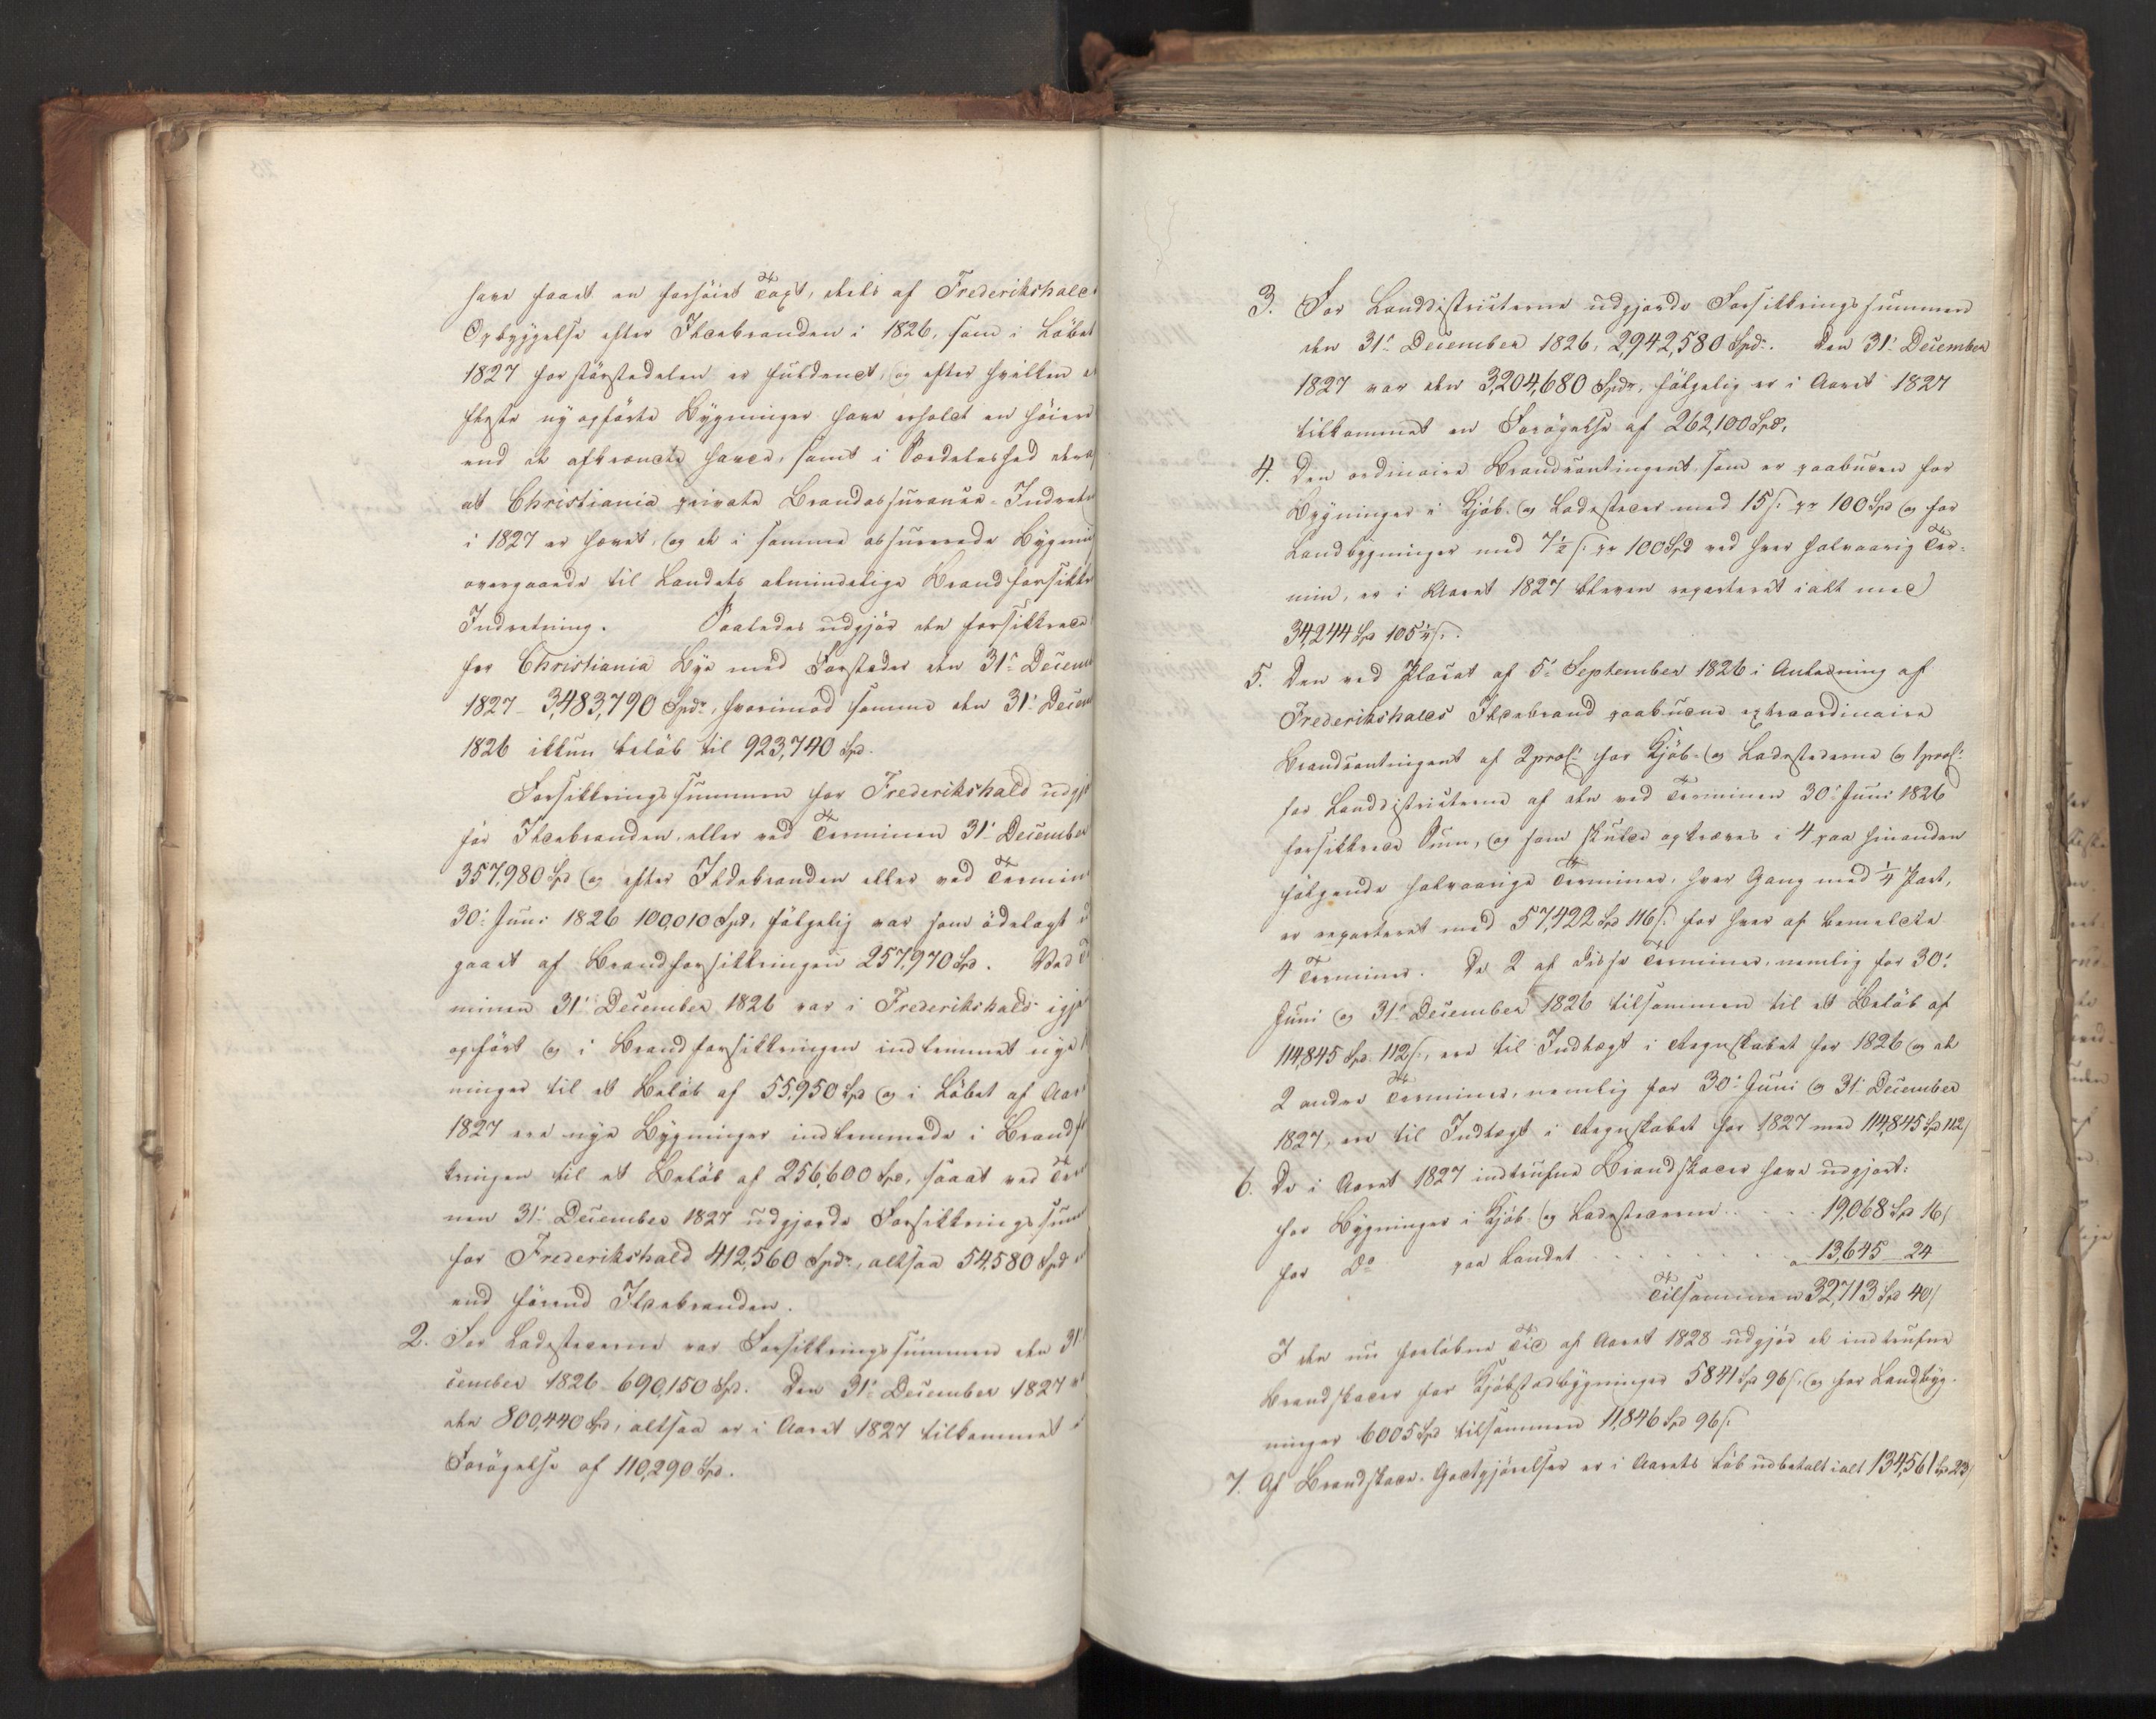 have faaet en forhöiet Taxt, dels af Frederikshalds
Opbyggelse efter Ildebranden i 1826, som i Löbet
1827 for störstedelen er fuldendt, og efter hvilken de
fleste ny opförte Bygninger have erholdt en höiere
end de afbrændte havde, samt i Særdeleshed deraf
at Christiania private Brandassurance-Indretn
i 1827 er hævet, og de i samme assurerede Bygnin
overgaaede til Landets almindelige Brandforsikkr
Indretning. Saaledes udgjör den forsikkrede
for Christiania Bye med Forstæder den 31te Decemb
1827 - 3,483,790 Spdr, hvorimod samme den 31t Decem
1826 ikkun belöb til 923,740 Spd.
Forsikkringssummen for Frederikshald udgj
för Ildebranden, eller ved Terminen 31t December
357,980 Spd og efter Ildebranden eller ved Termin
30t Juni 1826 100,010 Spd, fölgelig var som ödelagt u
gaaet af Brandforsikkringen 257,970 Spd. Ved T
minen 31t December 1826 var i Frederikshald igje
opfört og i Brandforsikkringen indlemmet nye
ninger til et Belöb af 55,950 Spd og i Löbet af Aar
1827 ere nye Bygninger indlemmede i Brandf
kringen til et Belöb af 256,600 Spd, saaat ved Ter
nen 31t December 1827 udgjorde Forsikkringssum
for Frederikshald 412,560 Spdr, altsaa 54,580 Spd
end förend Ildebranden.
2. For Ladestederne var Forsikkringssummen den 31t
cember 1826 690,150 Spd. Den 31t December 1827
den 800,440 Spd, altsaa er i Aaret 1827 tilkommet
Forögelse af 110,290 Spd.
3. For Landdistricterne udgjorde Forsikkringssummen
den 31t December 1826, 2,942,580 Spdr. Den 31t December
1827 var den 3,204,680 Spdr, fölgelig er i Aaret 1827
tilkommet en Forögelse af 262,100 Spd.
4. Den ordinaire Brandcontingent, som er paabuden for
Bygninger i Kjöb- og Ladesteder med 15 s. pr 100 Spd og for
Landbygninger med 7½ s. pr 100 Spd ved hver halvaarig Ter-
min, er i Aaret 1827 bleven reparteret ialt med
34,244 Spd 105¼ s.
5. Den ved Placat af 5t September 1826 i Anledning af
Frederikshalds Ildebrand paabudne extraordinaire
Brandcontingent af 2 proC. for Kjöb- og Ladestederne og 1 proC.
for Landdistricterne af den ved Terminen 30t Juni 1826
forsikkrede Sum, og som skulde opkræves i 4 paa hinanden
fölgende halvaarige Terminer, hver Gang med ¼ Part,
er reparteret med 57,422 Spd 116 s. for hver af bemeldte
4 Terminer. De 2 af disse Terminer, nemlig for 30t
Juni og 31t December 1826 tilsammen til et Belöb af
114,845 Spd 112 s., ere til Indtægt i Regnskabet for 1826 og de
2 andre Terminer, nemlig for 30t Juni og 31t December
1827, ere til Indtægt i Regnskabet for 1827 med 114,845 Spd 112 s
6. De i Aaret 1827 indtrufne Brandskader have udgjort:
for Bygninger i Kjöb- og Ladestederne . . . . 19,068 Spd 16 s
for Do paa Landet . . . . . . . 13,645 24
Tilsammen 32,713 Spd 40 s
I den nu forløbne Tid af Aaret 1828 udgjör de indtrufne
Brandskader for Kjöbstadbygninger 5841 Spd 96 s. og for Landbyg-
ninger 6005 Spd tilsammen 11,846 Spd 96 s.
7. Af Brandskade-Godtgjörelser er i Aarets Löb udbetalt ialt 134,561 Spd 23 s